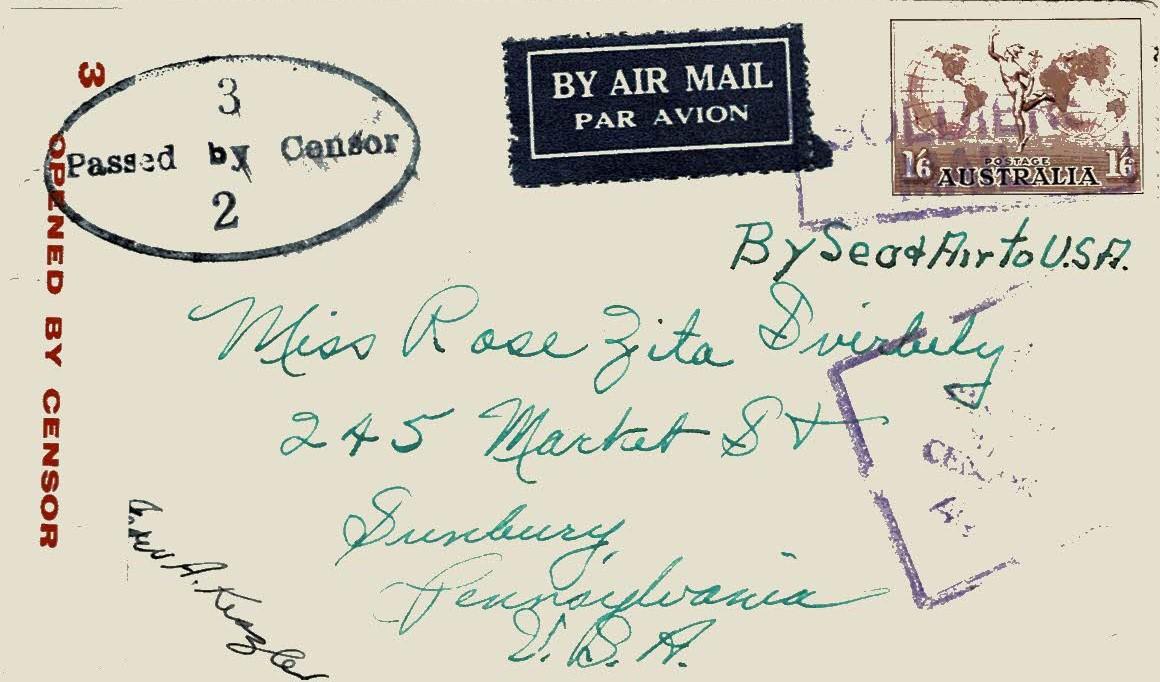 3
OPENED BY CENSOR
3
Passed by Censor
2
BY AIR MAIL
PAR AVION
1/6 POSTAGE 1/6
AUSTRALIA
By Sea & Air to U.S.A.
Miss Rose Zita Svirbely
245 Market St
Sunbury,
Pennsylvania
U.S.A.
CENSOR
A.